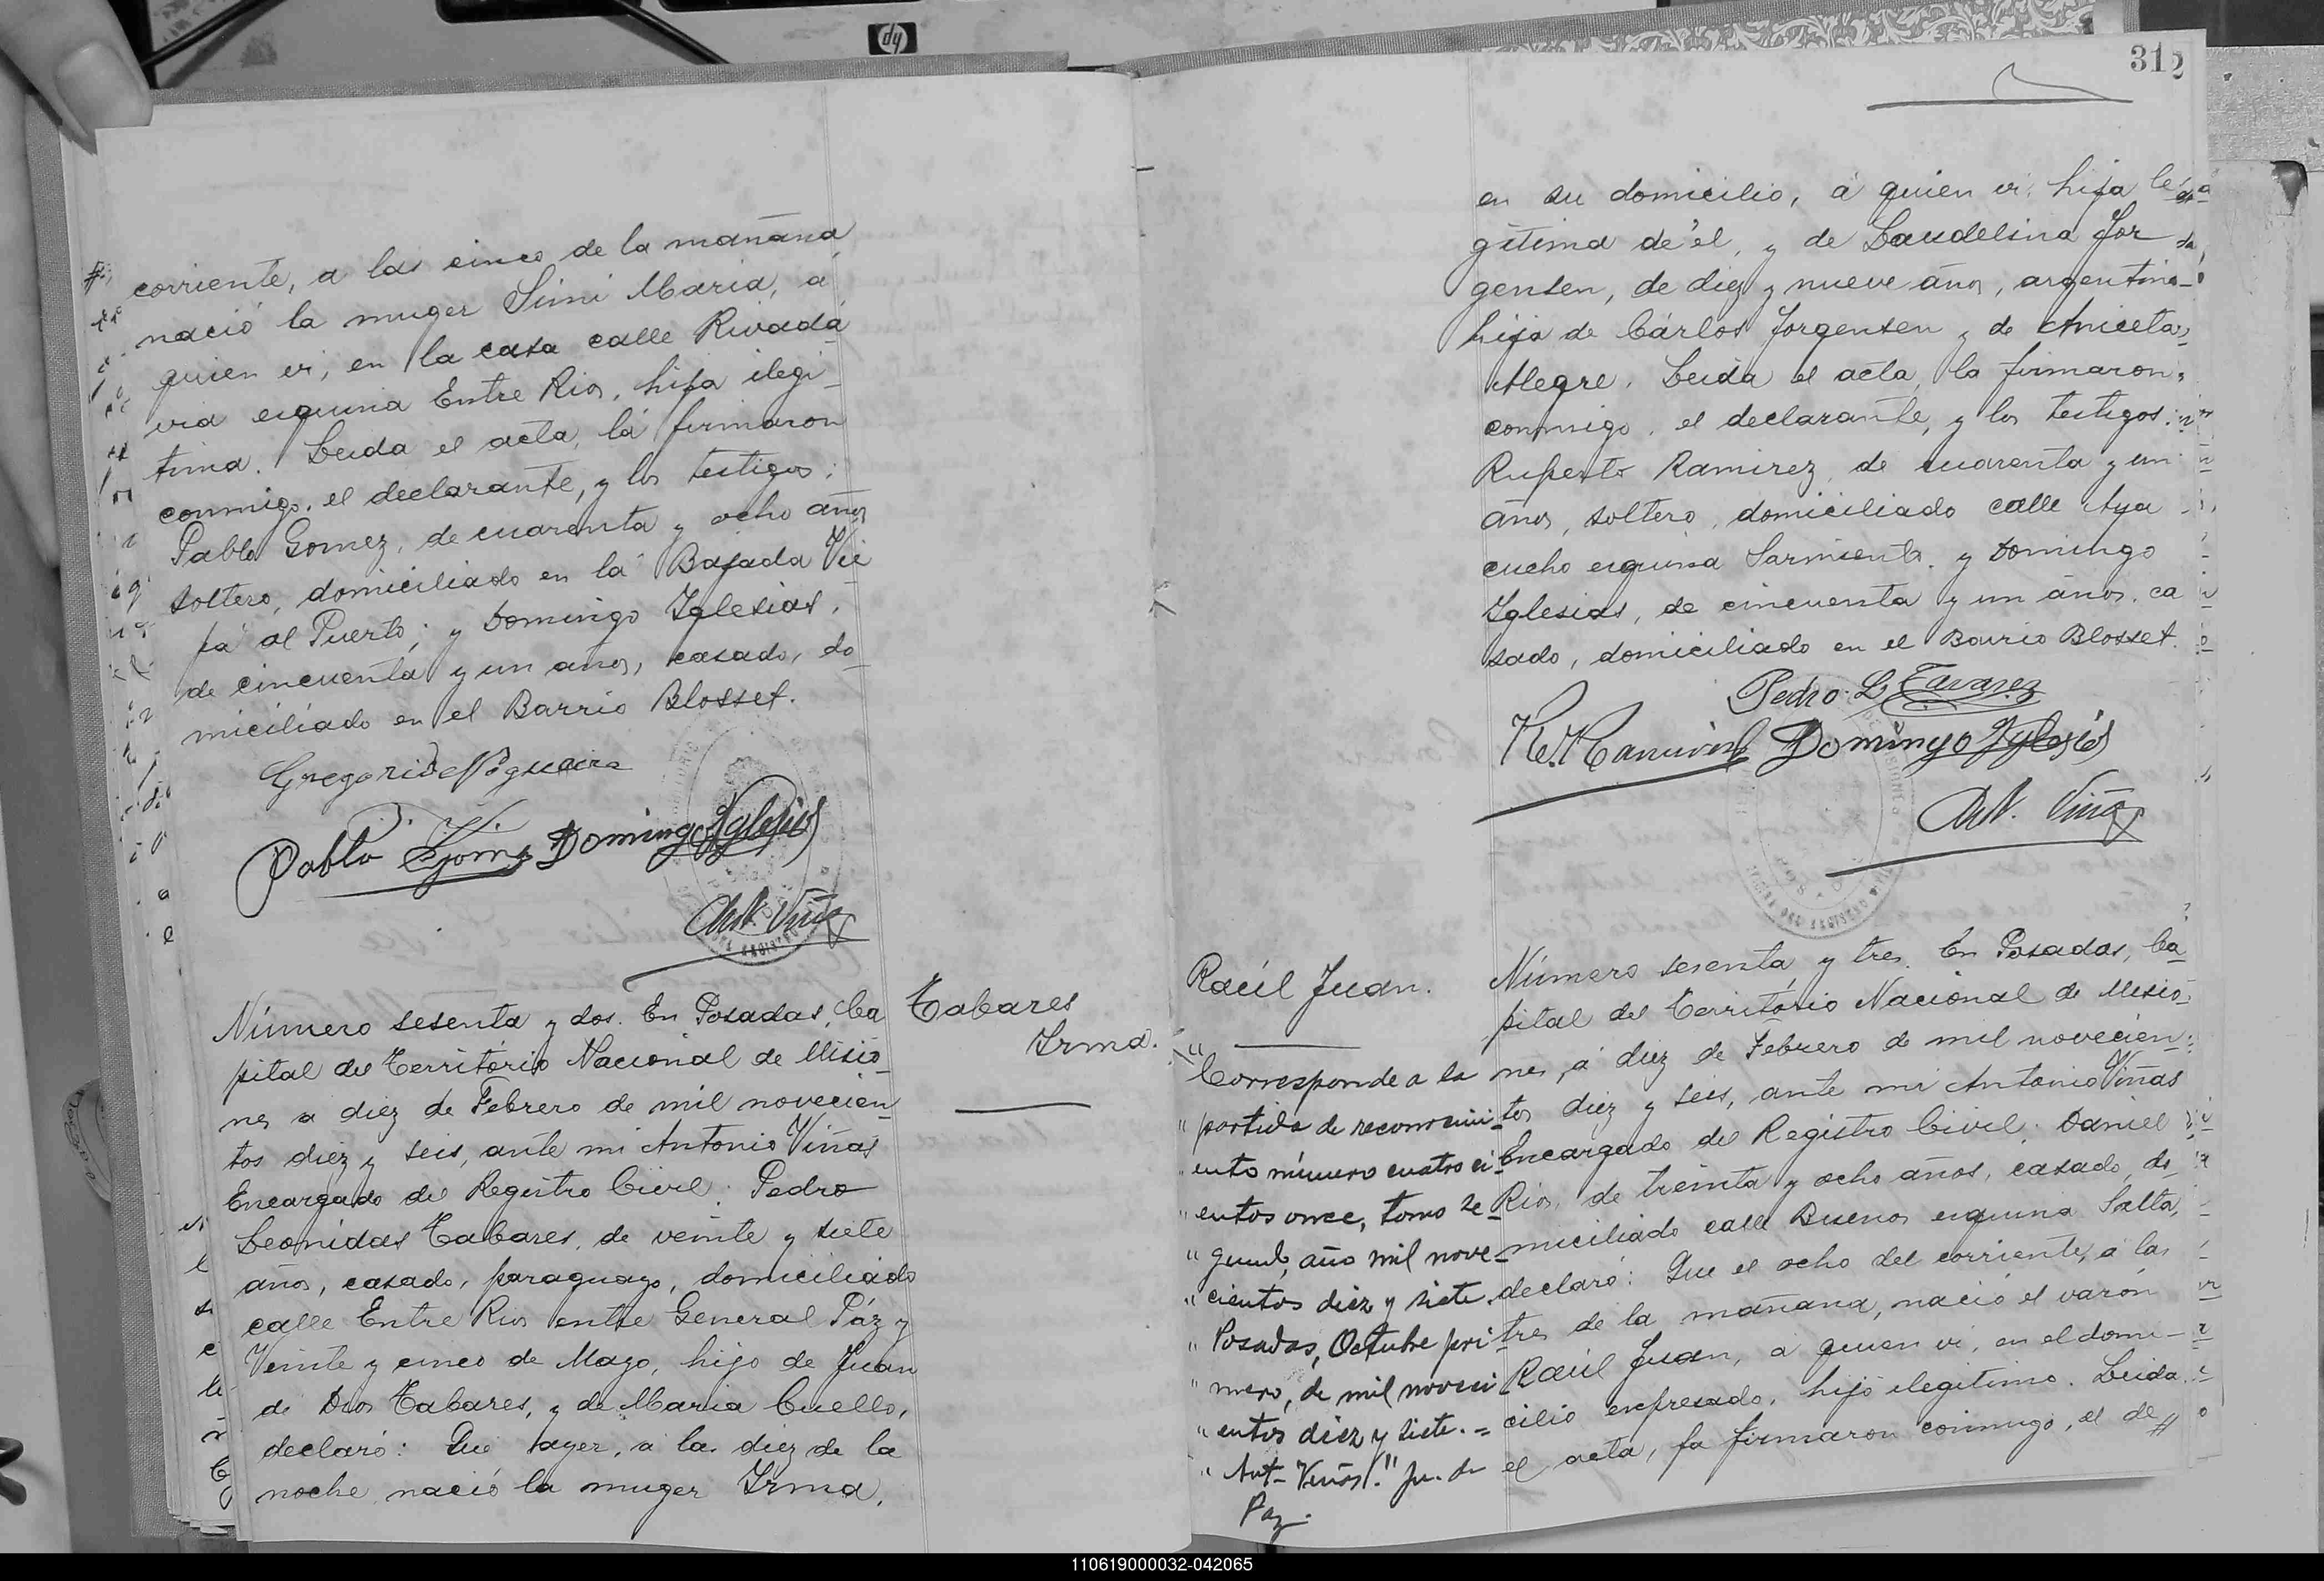 312
corriente, a las cinco de la mañana
nació la muger Simi Maria, á
quien vi, en la casa calle Rivada
via esquina Entre Rios, hija ilegi
tima. Leida el acta, la firmaron
conmigo, el declarante, y los testigos:
Pablo Gomez, de cuarenta y ocho años
soltero, domiciliado en la Bajada Vie
ja al Puerto; y Domingo Iglesias,
de cincuenta y un años, casado, do
miciliado en el Barrio Blosset.
Gregorio Noguera
Pablo Gomez Domingo Iglesias
Ant. Viñas
Tabares
Irma.
Número sesenta y dos. En Posadas, Ca
pital del Territorio Nacional de Misio
nes a diez de Febrero de mil novecien
tos diez y seis, ante mi Antonio Viñas
Encargado del Registro Civil: Pedro
Leonidas Tabares, de veinte y siete
años, casado, paraguayo, domiciliado
calle Entre Rios entre General Páz y
Veinte y cinco de Mayo, hijo de Juan
de Dios Tabares, y de Maria Cuello,
declaró: Que ayer, a las diez de la
noche nació la muger Irma,
en su domicilio, á quien vi, hija le
gitima de él, y de Laudelina Jor
gensen, de diez y nueve años, argentina
hija de Cárlos Jorgensen y de Aniceta
Alegre. Leida el acta, la firmaron
conmigo, el declarante, y los testigos:
Ruperto Ramirez, de cuarenta y un
años, soltero, domiciliado calle Aya
cucho esquina Sarmiento, y Domingo
Iglesias, de cincuenta y un años, ca
sado, domiciliado en el Barrio Blosset.
Pedro L Tavarez
R. Ramirez Domingo Iglesias
Ant. Viñas
Raúl Juan.
"Corresponde a la
"partida de reconocimi-
"ento número cuatroci-
"entos once, tomo se-
"gundo, año mil nove-
"cientos diez y siete.
"Posadas, Octubre pri-
"mero, de mil noveci
"entos diez y siete. =
"Ant- Viñas." Ju. de
Paz.
Número sesenta y tres. En Posadas, Ca
pital del Territorio Nacional de Misio
nes, á diez de Febrero de mil novecien
tos diez y seis, ante mi Antonio Viñas
Encargado del Registro Civil: Daniel
Rios, de treinta y ocho años, casado, do
miciliado calle Buenos esquina Salta,
declaró: Que el ocho del corriente, a las
tres de la mañana, nació el varón
Raúl Juan, a quien vi, en el domi-
cilio expresado, hijo ilegitimo. Leida
el acta, la firmaron conmigo, el de
110619000032-042065